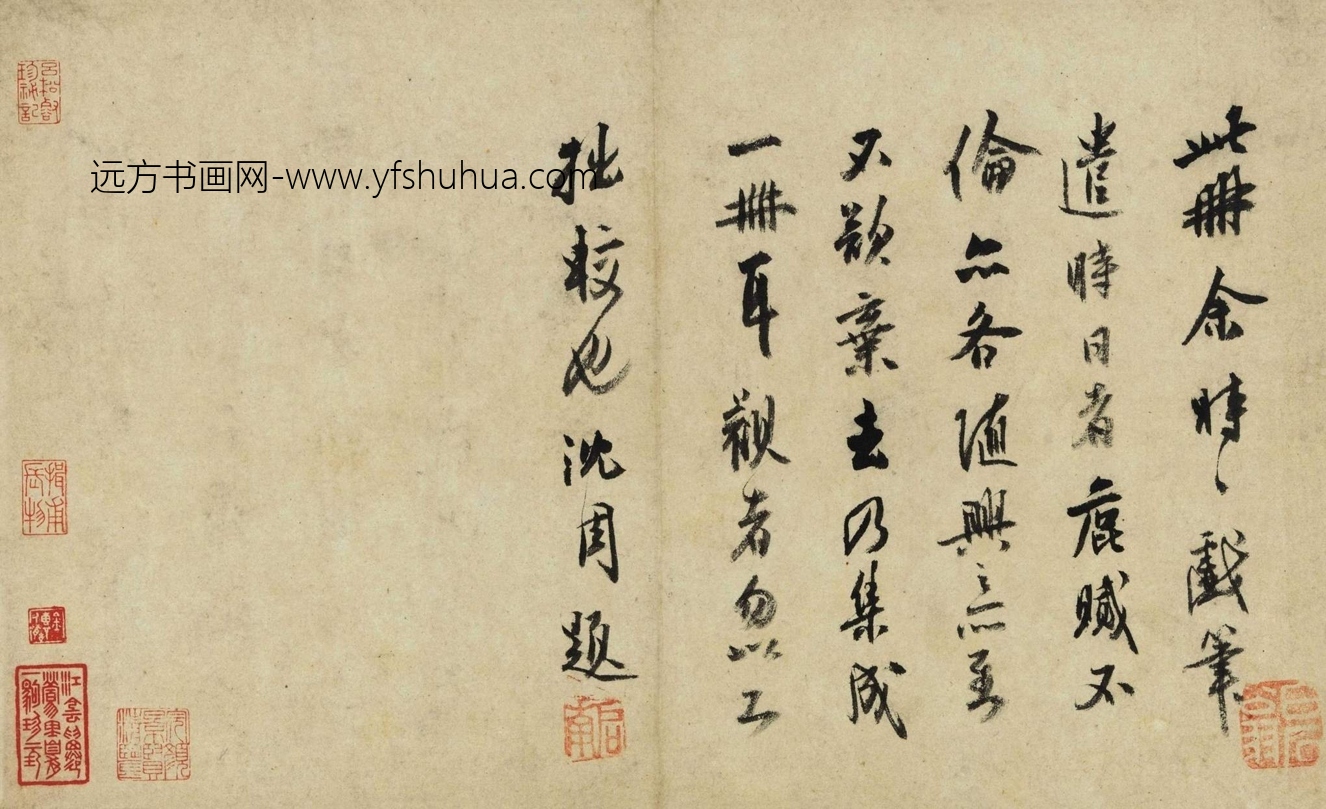 此冊余時〻戲筆
遣時日者麁膩不
倫亦各隨興而至
不欲棄去乃集成
一冊耳觀者勿以工
拙較也沈周題
远方书画网-www.yfshuhua.com